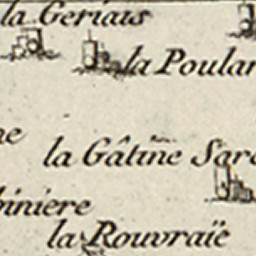 la Geriais
la Poular
la Gâtine Sare
biniere
la Rouvraïe